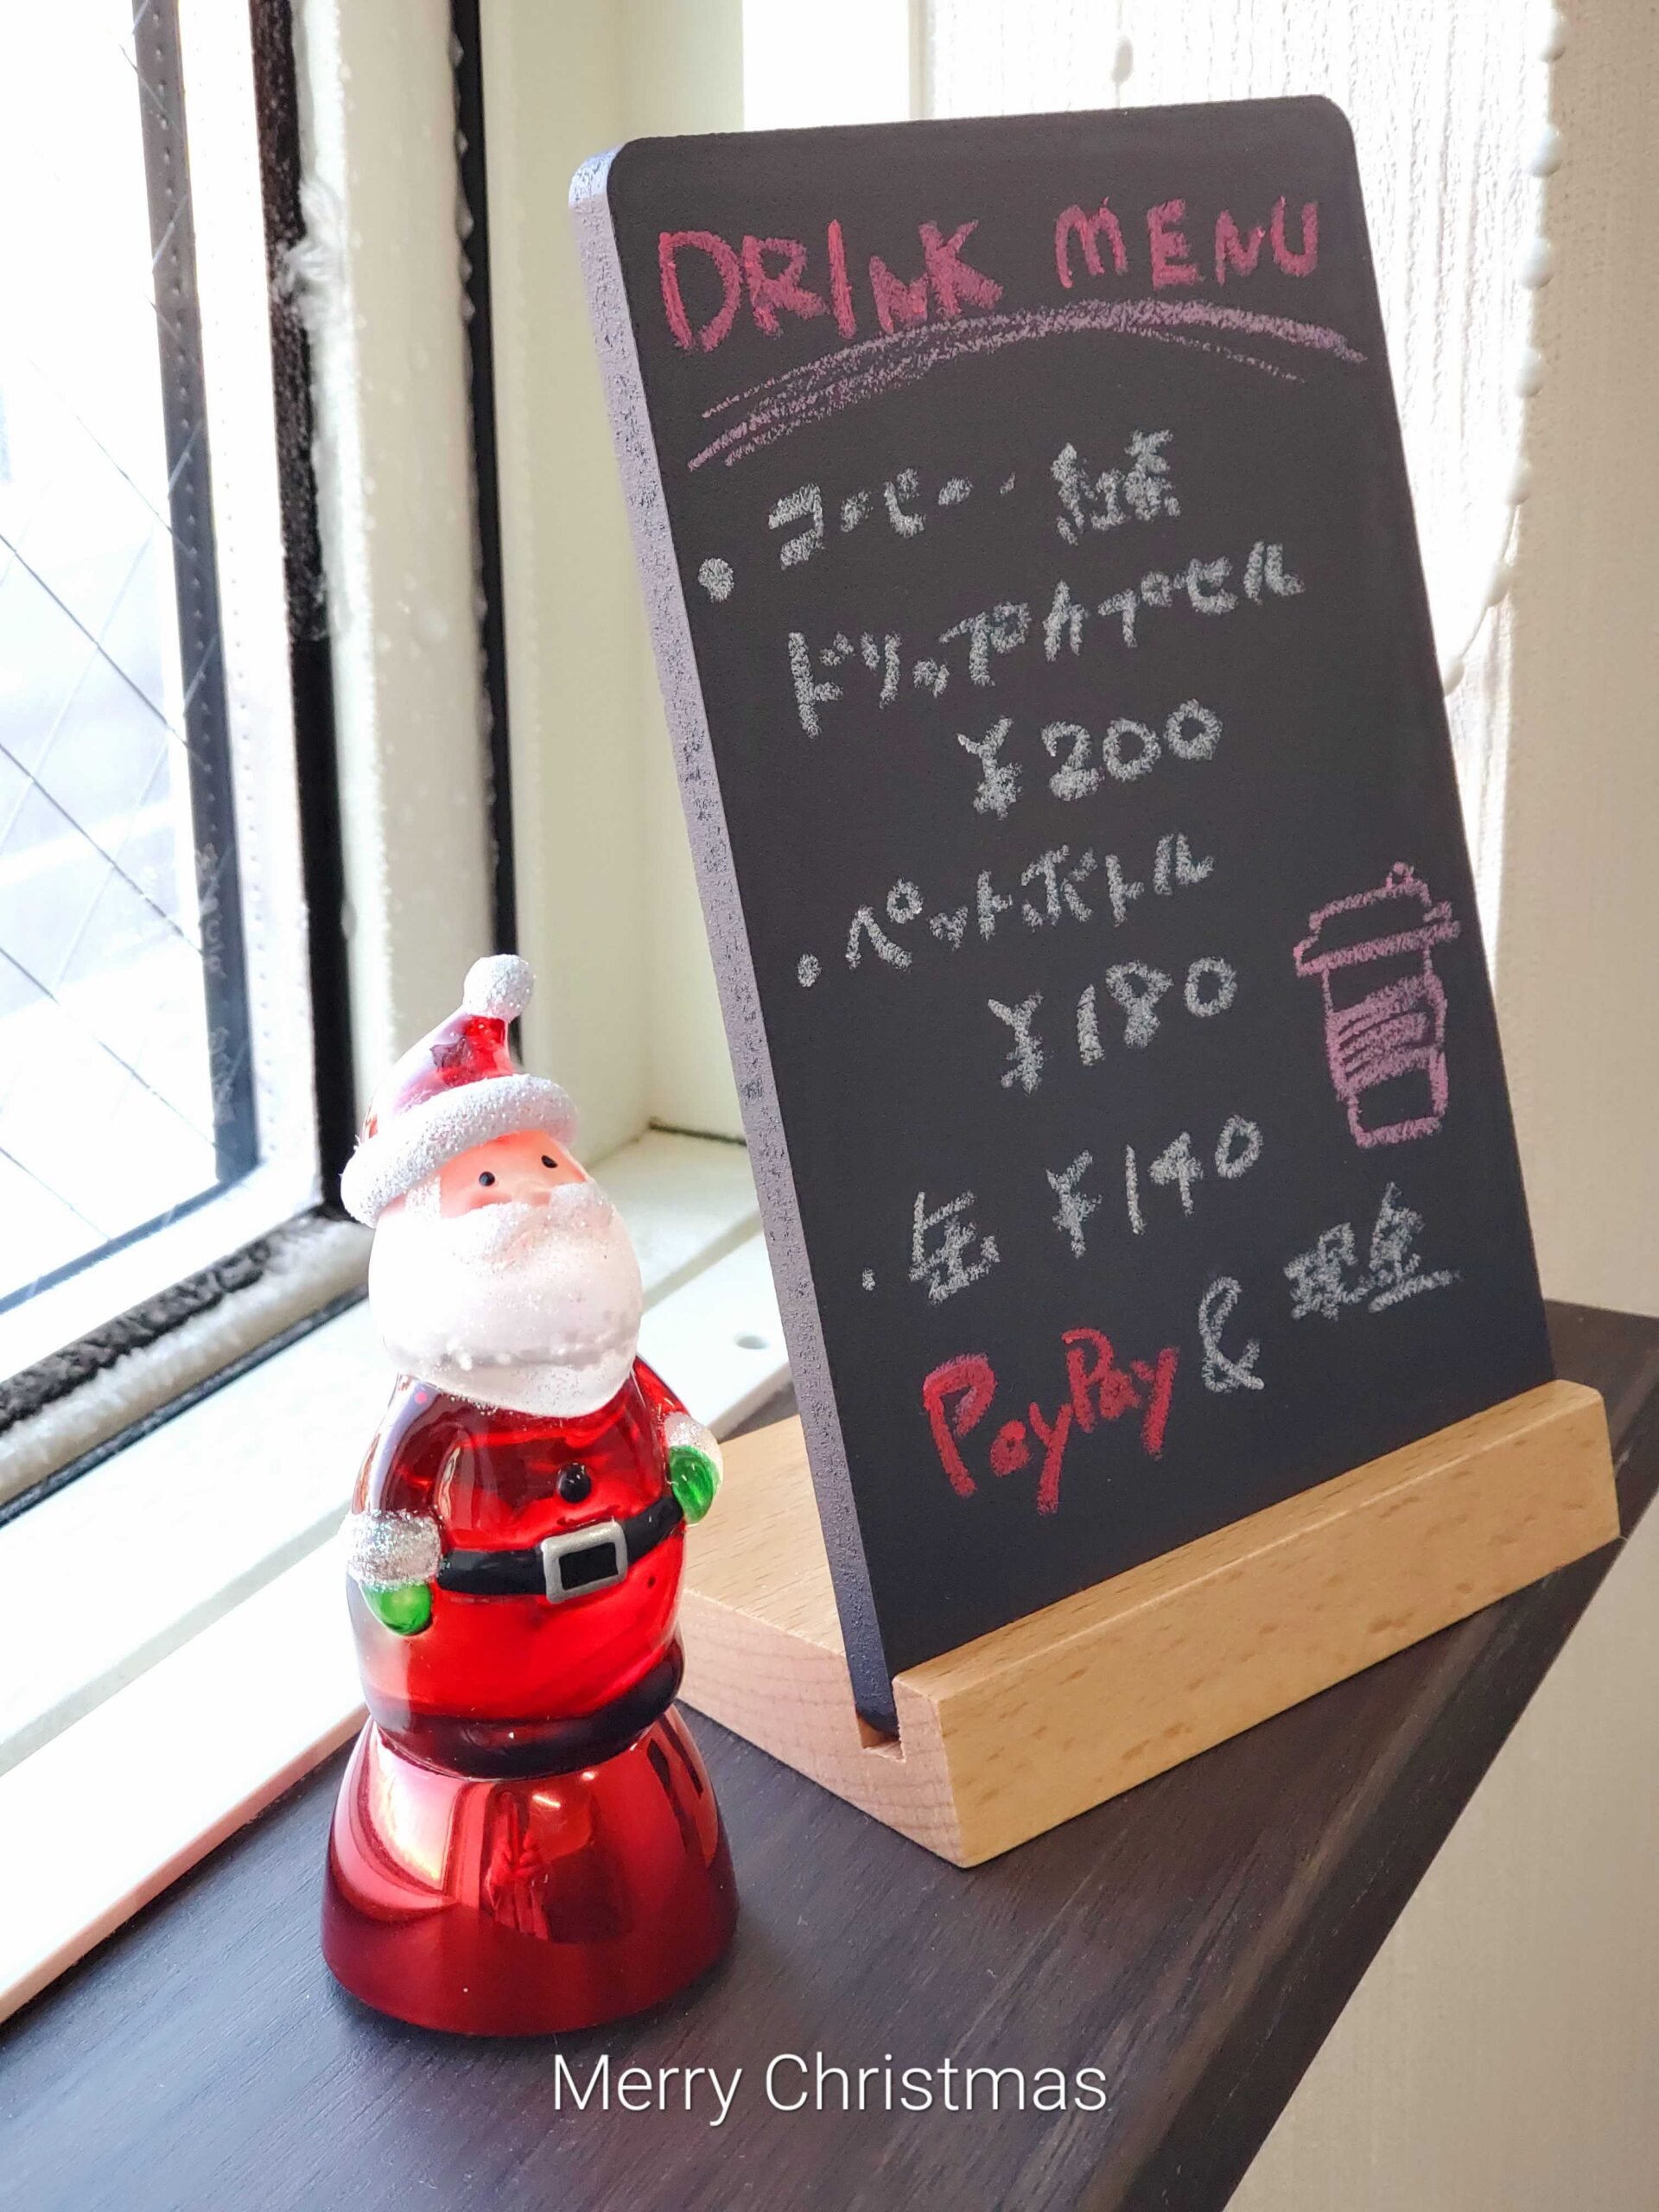 DRINK MENU
・コーヒー・紅茶
ドリップカプセル
¥200
・ペットボトル
¥180
・缶 ¥140
PayPay & 現金
Merry Christmas